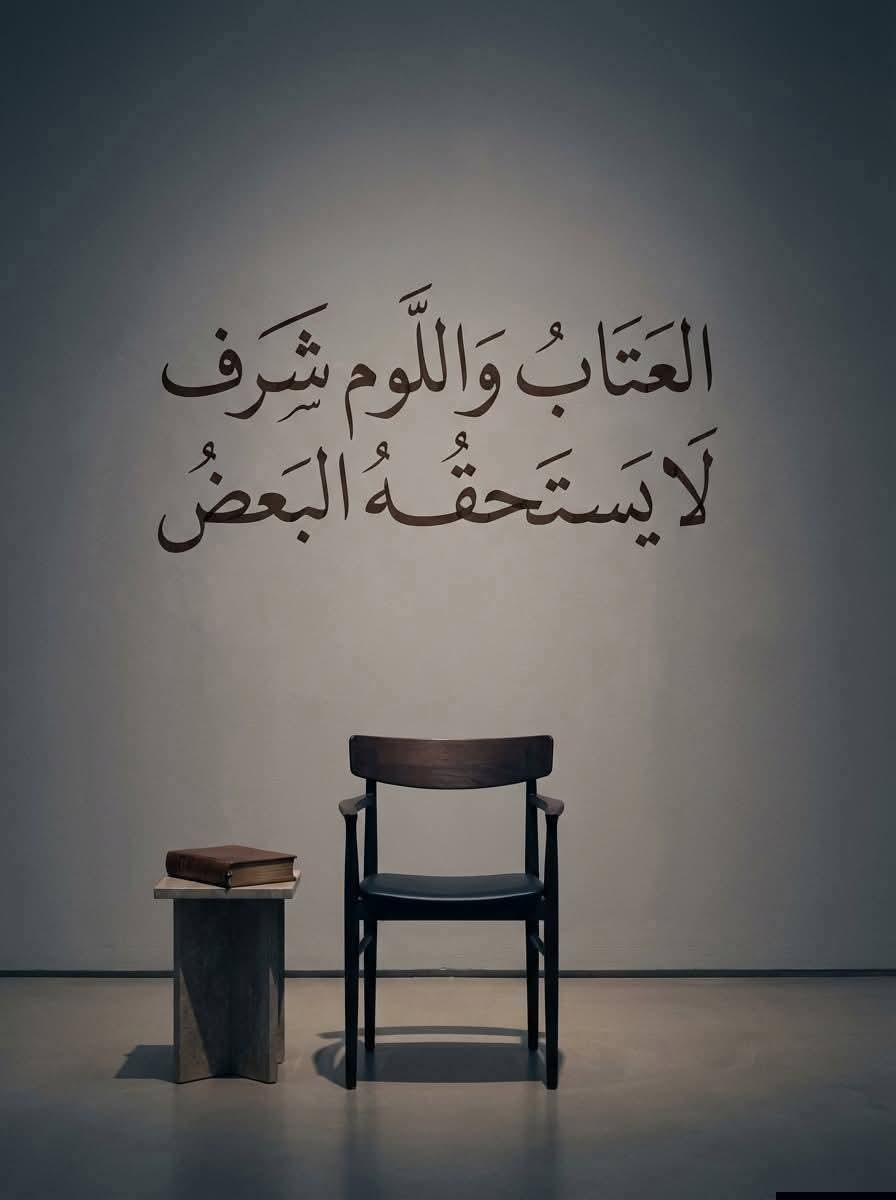 العَتَابُ وَاللَّوم شِرَف
لَا يَستَحقُهُ البَعضُ